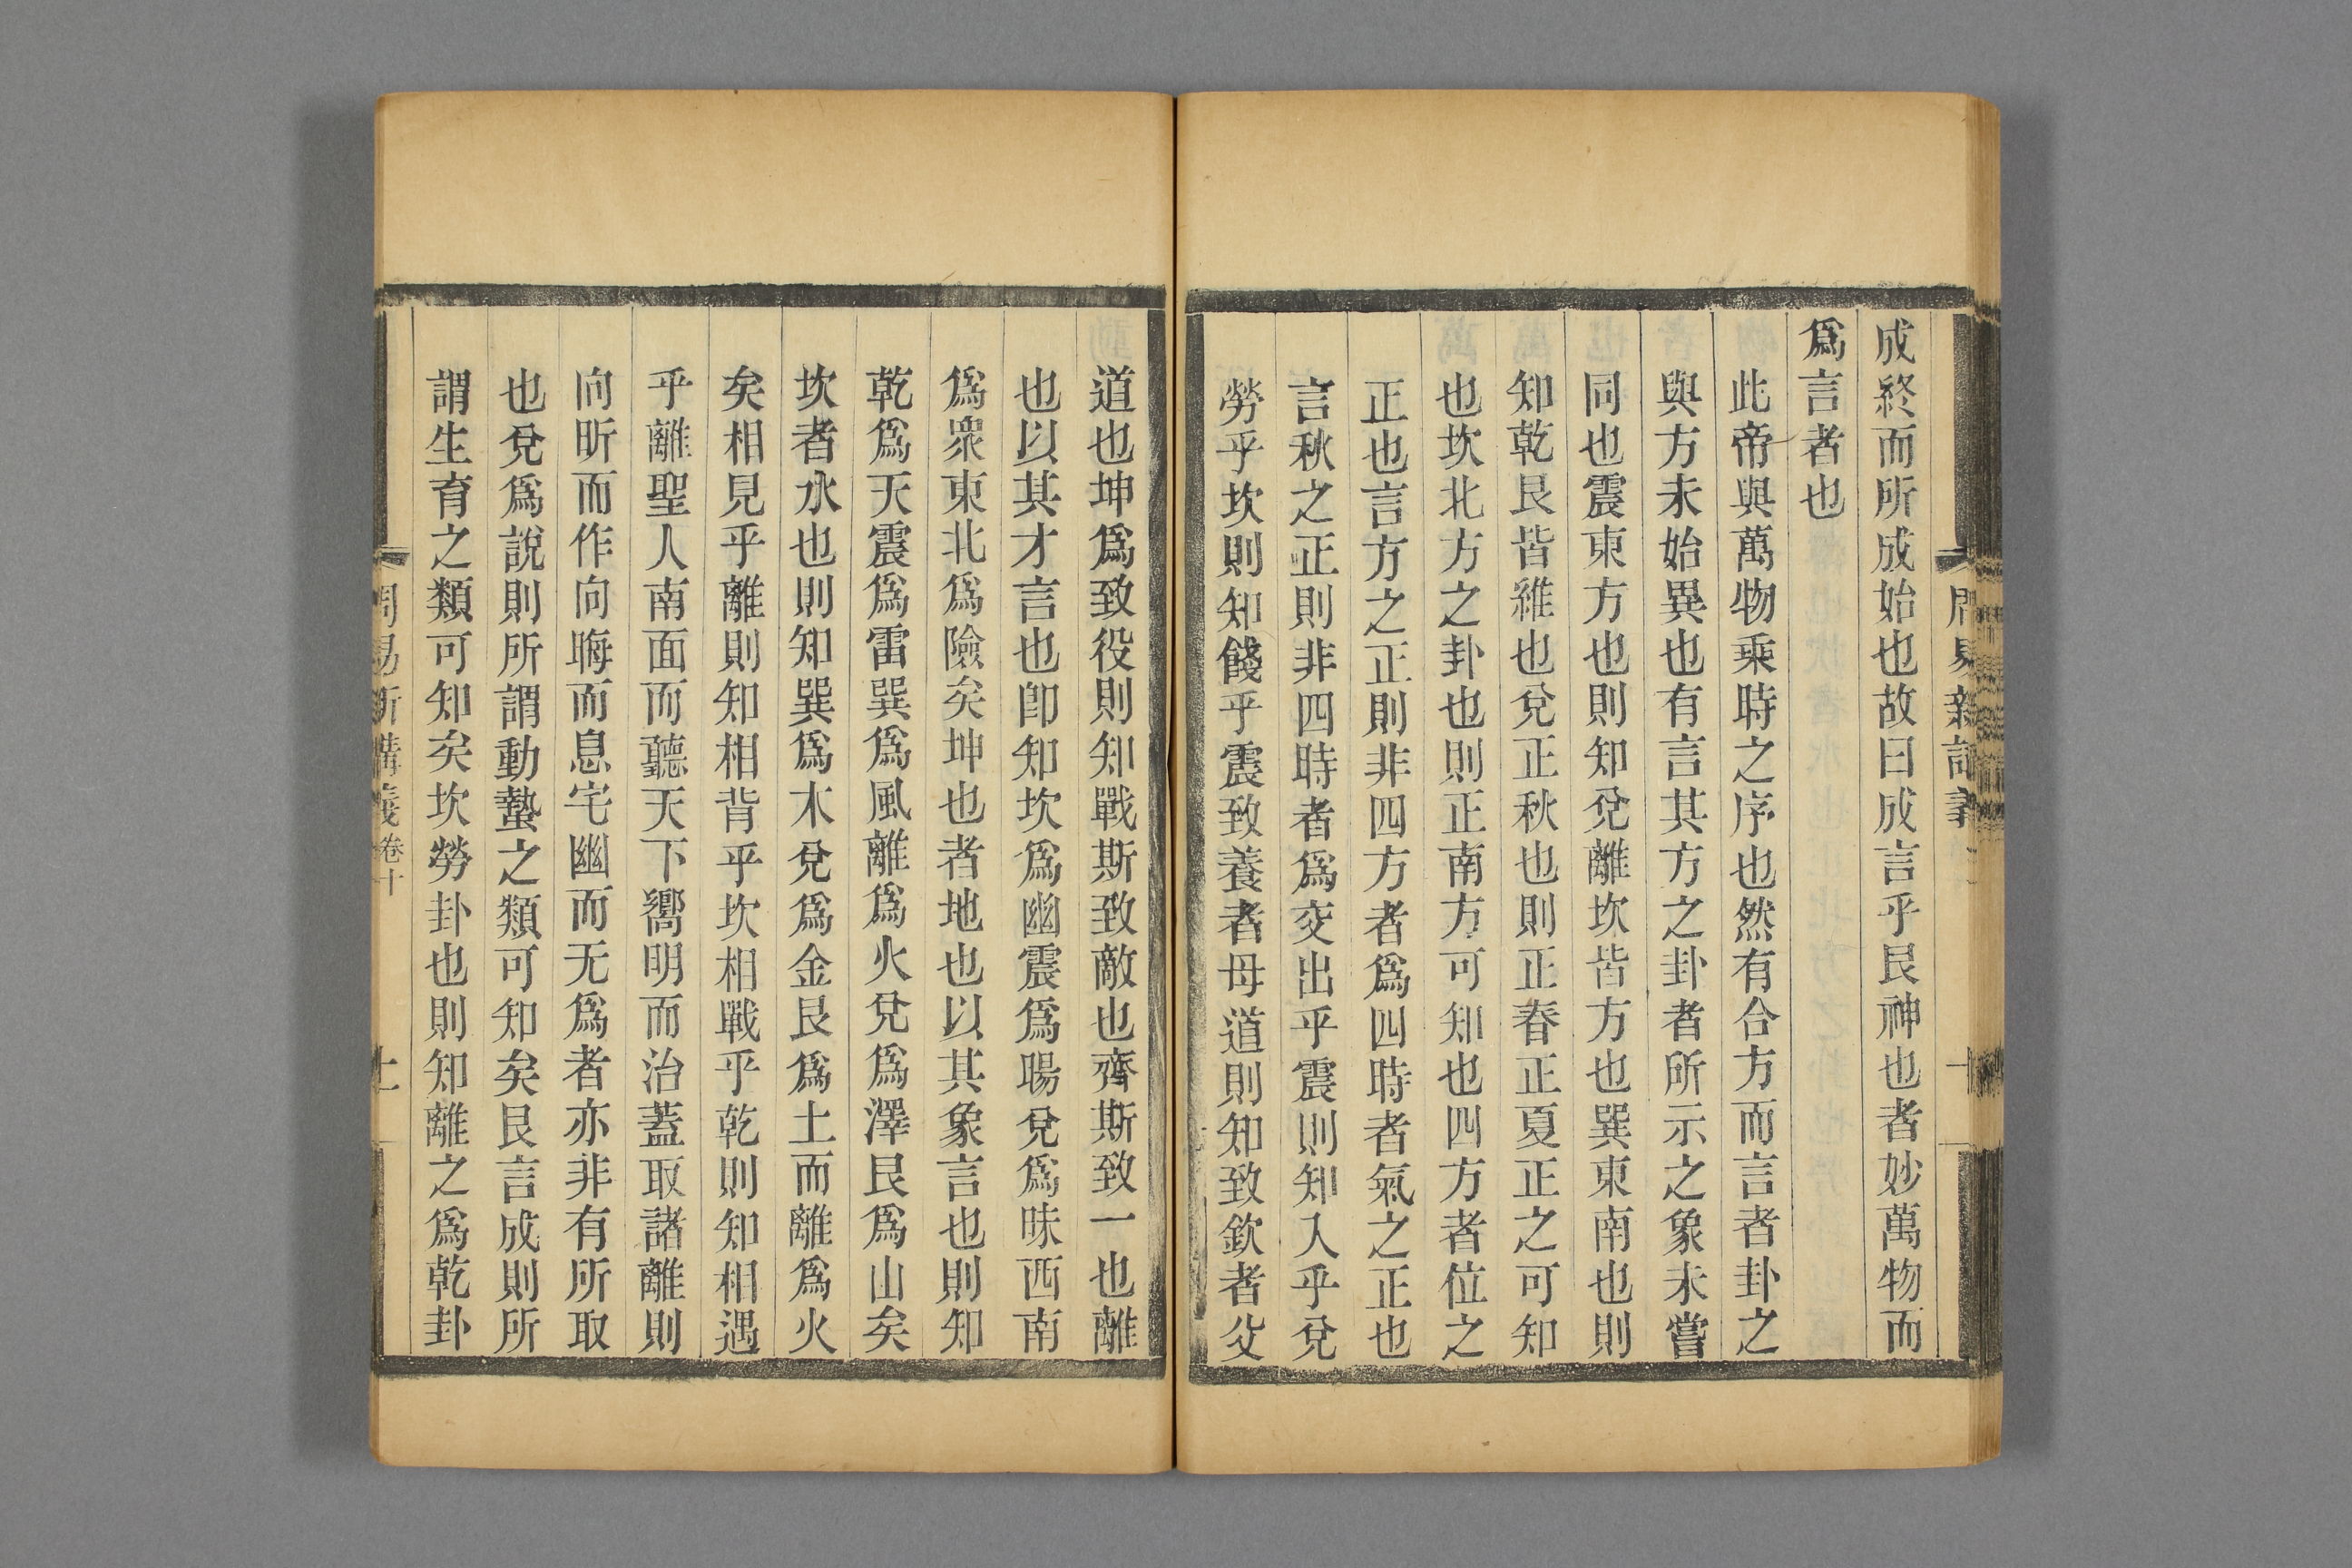 成終而所成始也故曰成言乎艮神也者妙萬物而
爲言者也
此帝與萬物乘時之序也然有合方而言者卦之
與方未始異也有言其方之卦者所示之象未嘗
同也震東方也則知兌離坎皆方也巽東南也則
知乾艮皆維也兌正秋也則正春正夏正之可知
也坎北方之卦也則正南方可知也四方者位之
正也言方之正則非四方者爲四時者氣之正也
言秋之正則非四時者爲交出乎震則知入乎兌
勞乎坎則知餞乎震致養者母道則知致欽者父
道也坤爲致役則知戰斯致敵也齊斯致一也離
也以其才言也卽知坎爲幽震爲暘兌爲昧西南
爲衆東北爲險矣坤也者地也以其象言也則知
乾爲天震爲雷巽爲風離爲火兌爲澤艮爲山矣
坎者水也則知巽爲木兌爲金艮爲土而離爲火
矣相見乎離則知相背乎坎相戰乎乾則知相遇
乎離聖人南面而聽天下嚮明而治蓋取諸離則
向昕而作向晦而息宅幽而无爲者亦非有所取
也兌爲說則所謂動蟄之類可知矣艮言成則所
謂生育之類可知矣坎勞卦也則知離之爲乾卦
周易新講義卷十